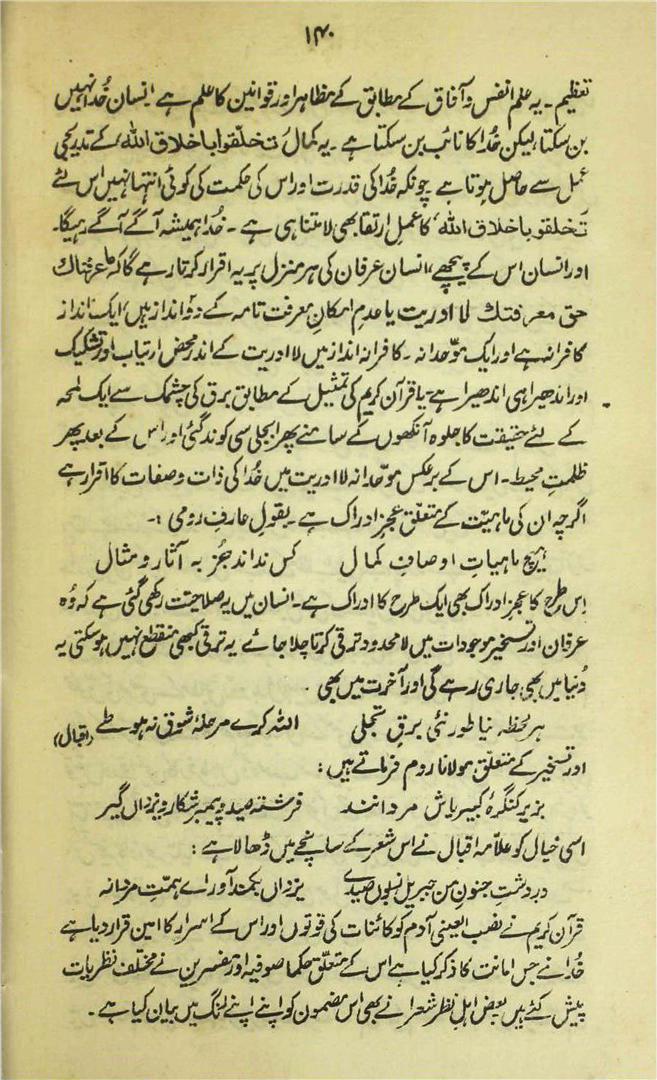 ۱۴۰
تعظیم ۔ یہ علم انفس و آفاق کے مطابق کے مظاہر اور قوانین کا علم ہے انسان خُدا نہیں
بن سکتا، لیکن خُدا کا نائب بن سکتا ہے ۔ یہ کمال تخلّقوا باخلاق اللہ، کے تدریجی
عمل سے حاصل ہوتا ہے چونکہ خُدا کی قدرت اور اس کی حکمت کی کوئی انتہا نہیں اس لئے
تَخلقو باخلاق اللہ، کا عملِ ارتقا بھی لامتناہی ہے ۔ خُدا ہمیشہ آگے آگے رہیگا ۔
اور انسان اس کے پیچھے، انسان عرفان کی ہر منزل پر یہ اقرار کرتا رہے گا کہ ما عرفناک
حق معرفتک لا ادریت یا عدمِ امکانِ معرفت تامہ کے دو انداز ہیں، ایک انداز
کافرانہ ہے اور ایک موّحدانہ ۔ کافرانہ انداز میں لا ادریت کے اندر محض ارتیاب اور تشکیک
اور اندھیرا ہی اندھیرا ہے ۔ یا قرآن کریم کی تمثیل کے مطابق برق کی چشمک سے ایک لمحہ
کے لئے حقیقت کا جلوہ آنکھوں کے سامنے پھر ابجلی سی کوند گئی اور اس کے بعد پھر
ظلمتِ محیط ۔ اس کے برعکس موّحدانہ لا ادریت میں خُدا کی ذات و صفات کا اقرار ہے
اگرچہ ان کی ماہیّت کے متعلّق عجزِ ادراک ہے ۔ بقول عارف رومی :-
ہیچ ماہیاتِ اوصافِ کمال کس نداند جُز بہ آثار و مثال
اِس طرح کا عجزِ ادراک بھی ایک طرح کا ادراک ہے ۔ انسان میں یہ صلاحیّت رکھی گئی ہے کہ وُہ
عرفان اور تسخیرِ موجودات میں لامحدود ترقی کرتا چلا جائے یہ ترقی کبھی منقطع نہیں ہو سکتی یہ
دُنیا میں بھی جاری رہے گی اور آخرت میں بھی ۔
ہر لحظہ نیا طور نئی برقِ تجلی اللہ کرے مرحلۂ شوق نہ ہو طے (اقبال)
اور تسخیر کے متعلّق مولانا روم فرماتے ہیں :
بزیر کنگرۂ کبریاش مردانند فرشتہ صید و پیمبر شکار و یزداں گیر
اسی خیال کو علّامہ اقبال نے اس شعر کے سانچے میں ڈھالا ہے :
در دشتِ جنونِ من جبریل زبوں صیدے یزداں بکمند آور اے ہمتِ مردانہ
قرآن کریم نے نصب العینی آدم کو کائنات کی قوتوں اور اس کے اسرار کا امین قرار دیا ہے
خُدا نے جس امانت کا ذکر کیا ہے اس کے متعلّق حکما صوفیہ اور مفسرین نے مختلف نظریات
پیش کئے ہیں بعض اہلِ نظر شعرا نے بھی اس مضمون کو اپنے اپنے رنگ میں بیان کیا ہے ۔